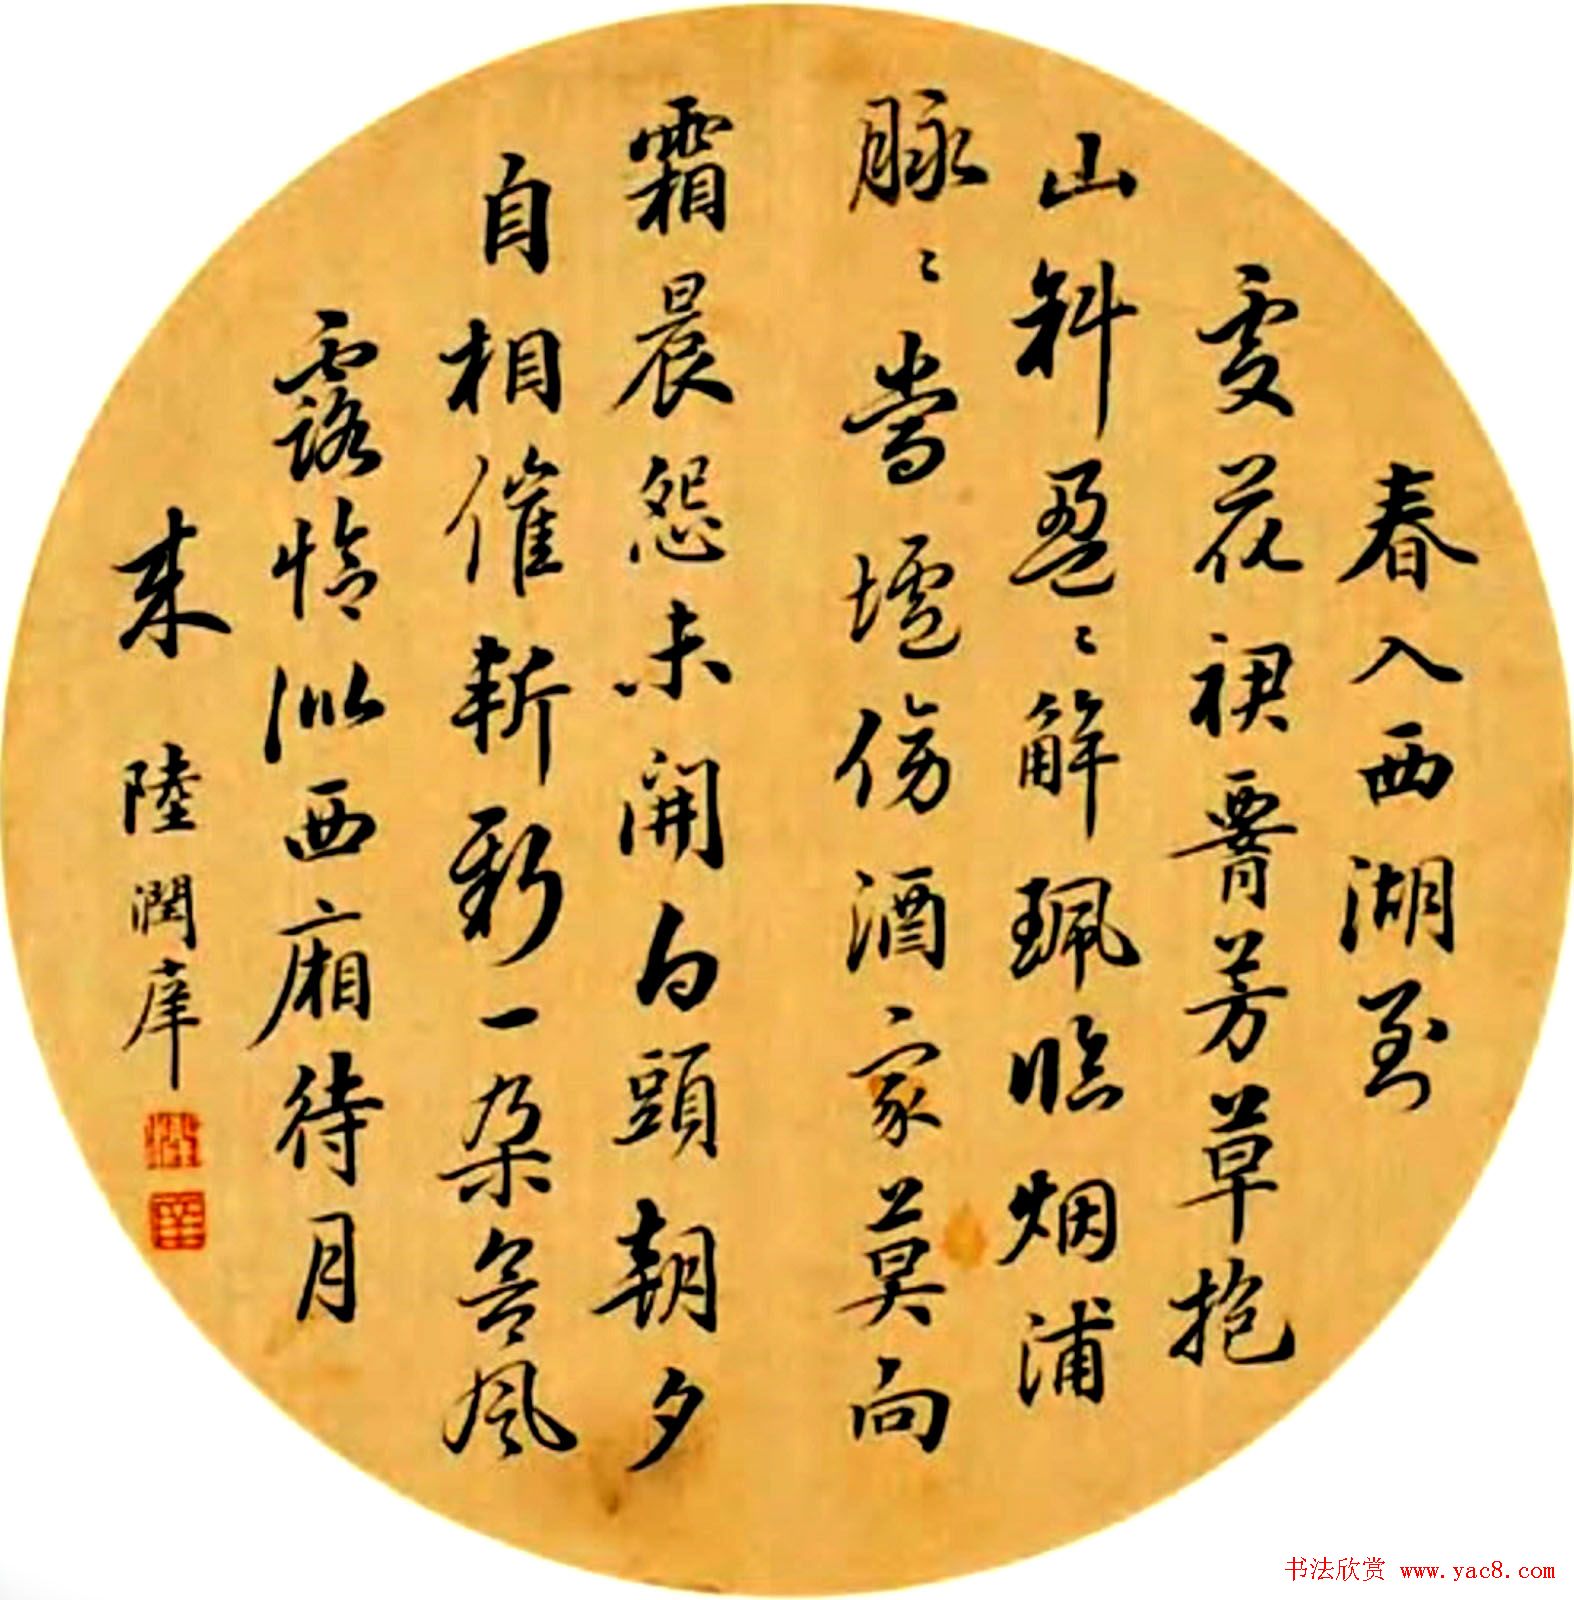 春入西湖到
處花裙䙚芳草抱
山斜盈〻解珮臨烟浦
脉〻當壚傍酒家莫向
霜晨怨未開白頭朝夕
自相催斬新一朵含風
露恰似西廂待月
來 陸潤庠
书法欣赏 www.yac8.com